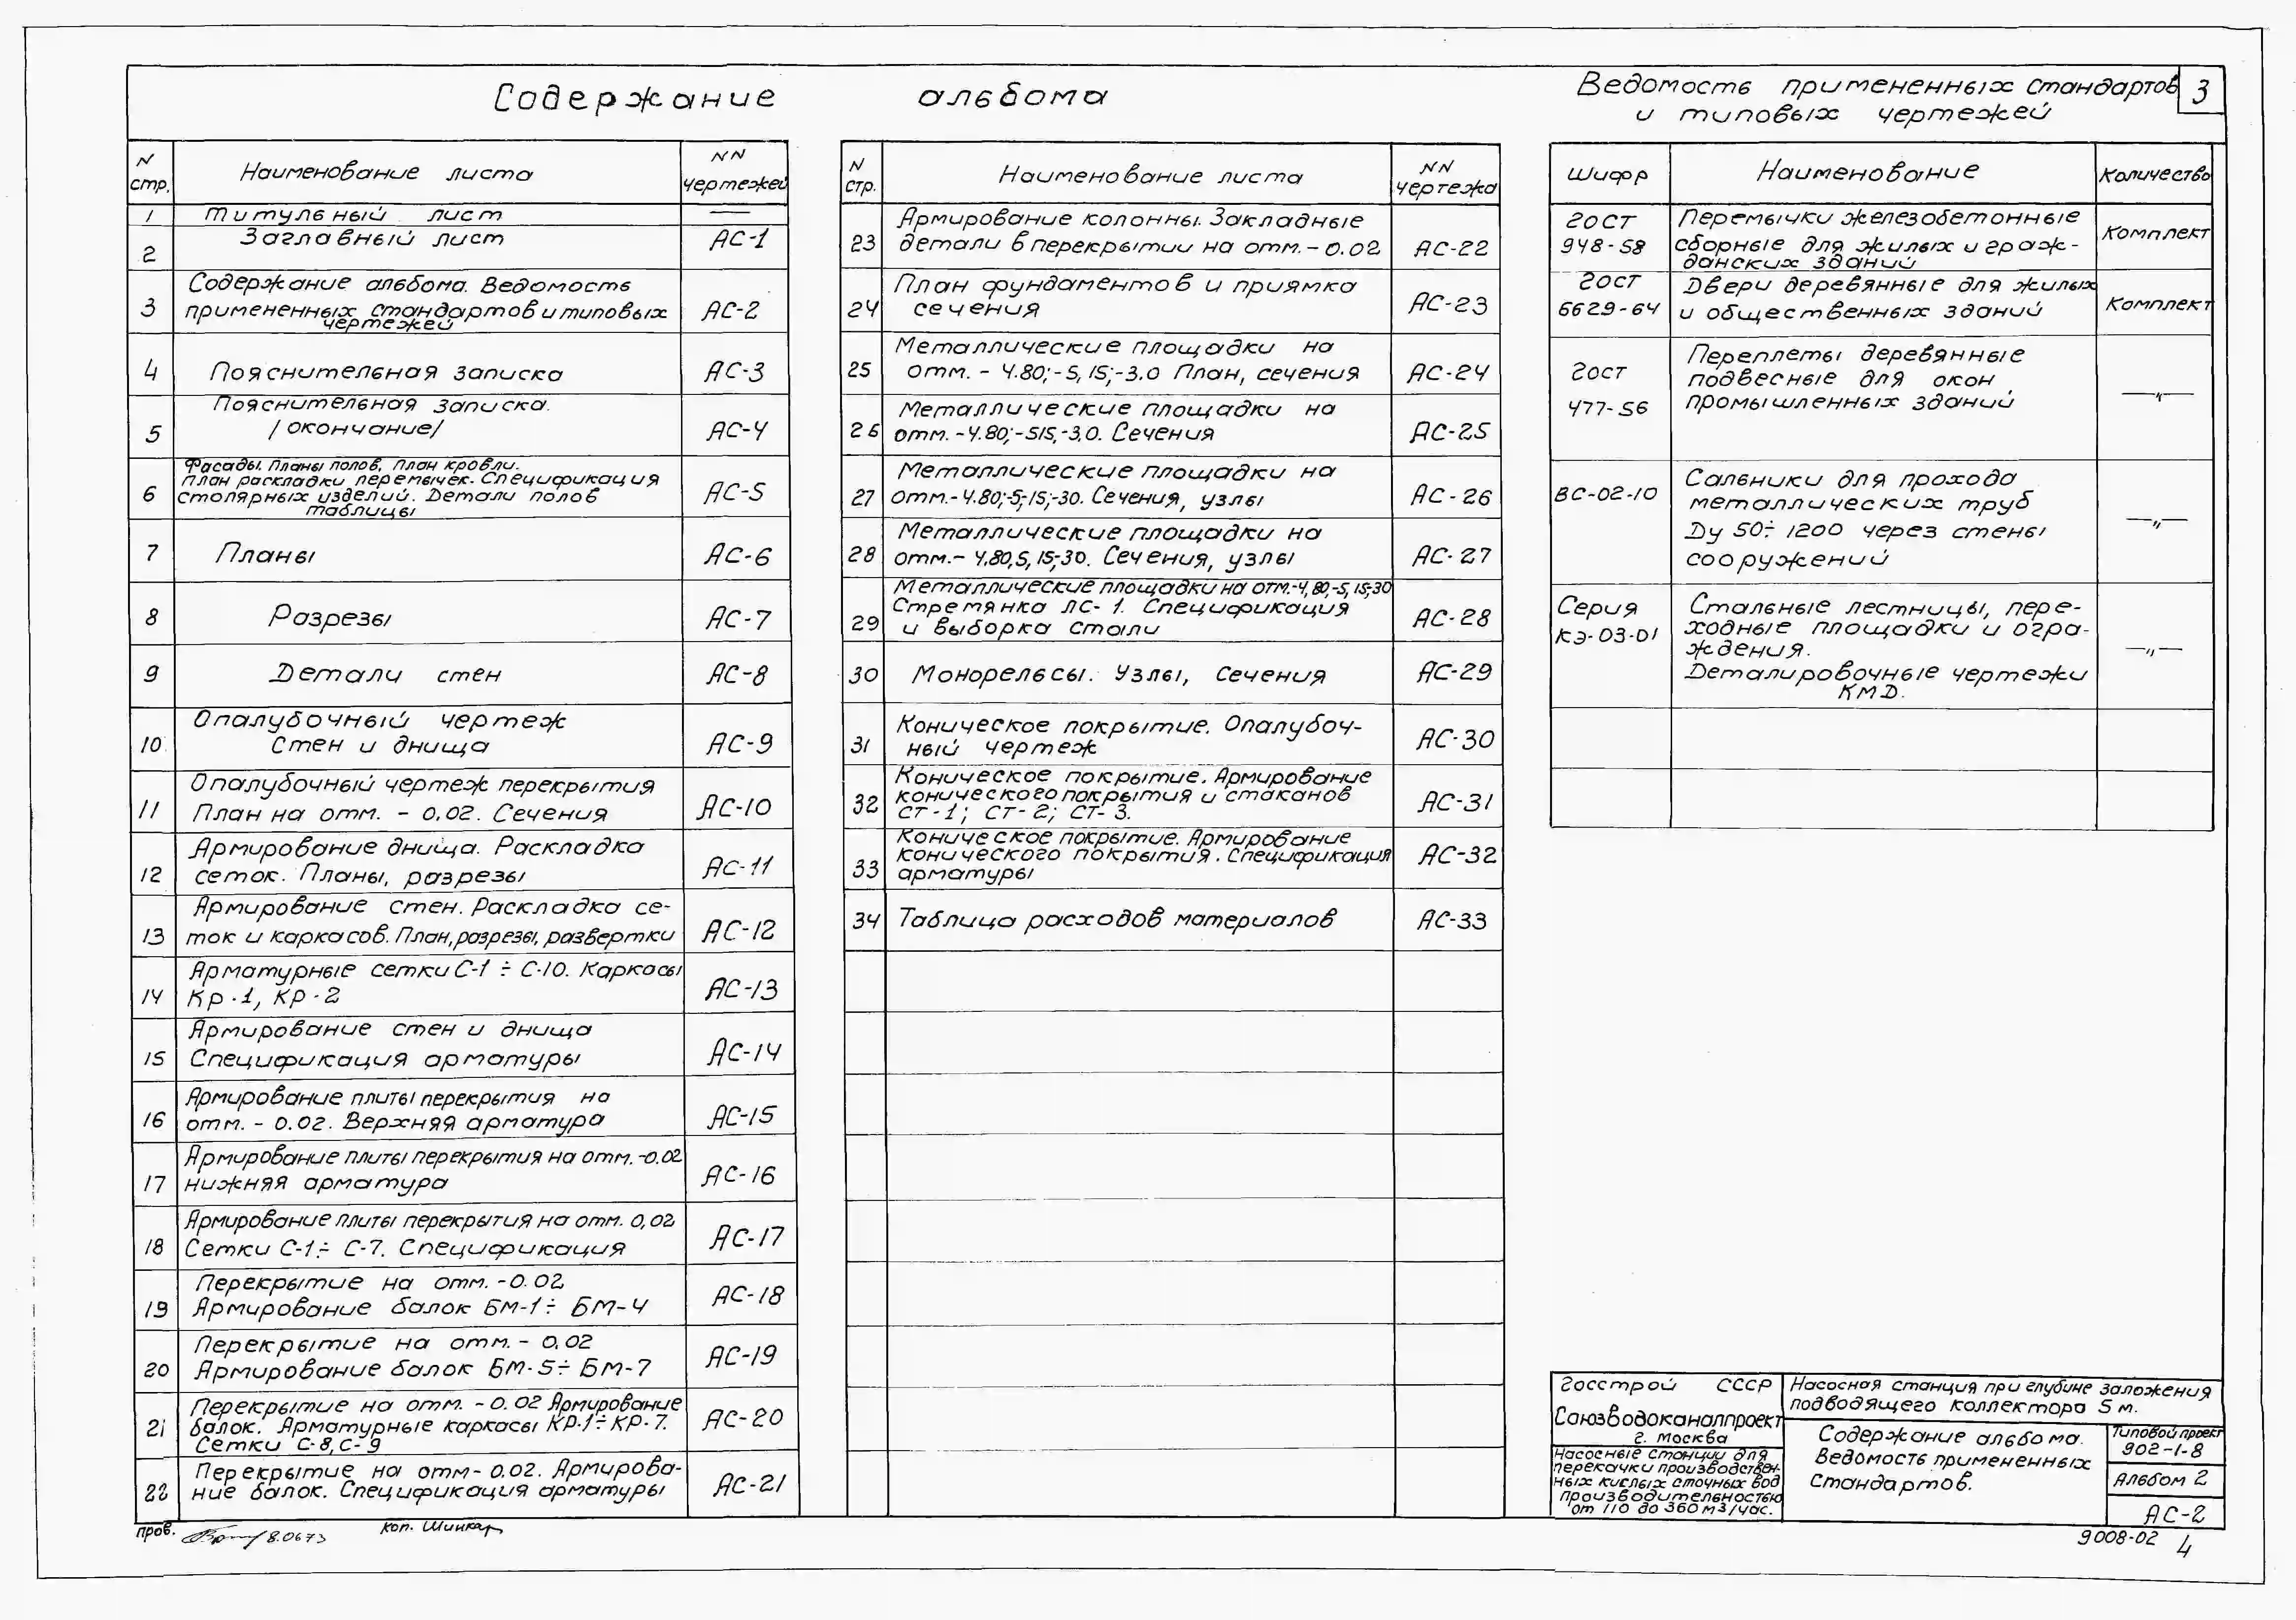 Содержание альбома
Ведомость примененных стандартов
и типовых чертежей
3
N стр.
Наименование листа
NN чертежей
1 Титульный лист —
2 Заглавный лист АС-1
Содержание альбома. Ведомость
3 примененных стандартов и типовых АС-2
чертежей
4 Пояснительная записка АС-3
Пояснительная записка.
5 /окончание/ АС-4
Фасады. Планы полов, план кровли.
План раскладки перемычек. Спецификация
6 столярных изделий. Детали полов АС-5
таблицы
7 Планы АС-6
8 Разрезы АС-7
9 Детали стен АС-8
Опалубочный чертеж
10 Стен и днища АС-9
Опалубочный чертеж перекрытия
11 План на отм. - 0.02. Сечения АС-10
Армирование днища. Раскладка
12 сеток. Планы, разрезы АС-11
Армирование стен. Раскладка се-
13 ток и каркасов. План, разрезы, развертки АС-12
Арматурные сетки С-1 ÷ С-10. Каркасы
14 Кр-1, КР-2 АС-13
Армирование стен и днища
15 Спецификация арматуры АС-14
Армирование плиты перекрытия на
16 отм. - 0.02. Верхняя арматура АС-15
Армирование плиты перекрытия на отм. -0.02
17 нижняя арматура АС-16
Армирование плиты перекрытия на отм. 0,02
18 Сетки С-1÷ С-7. Спецификация АС-17
Перекрытие на отм. -0.02
19 Армирование балок БМ-1÷ БМ-4 АС-18
Перекрытие на отм. - 0,02
20 Армирование балок БМ-5÷ БМ-7 АС-19
Перекрытие на отм. -0.02 Армирование
21 балок. Арматурные каркасы КР-1÷КР-7. АС-20
Сетки С-8, С-9
Перекрытие на отм- 0.02. Армирова-
22 ние балок. Спецификация арматуры АС-21
N стр.
Наименование листа
NN чертежа
Армирование колонны. Закладные
23 детали в перекрытии на отм. - 0.02 АС-22
План фундаментов и приямка
24 сечения АС-23
Металлические площадки на
25 отм. - 4.80; -5,15; -3.0 План, сечения АС-24
Металлические площадки на
26 отм. -4.80; -515, -3,0. Сечения АС-25
Металлические площадки на
27 отм.- 4.80;-5;-15;-30. Сечения, узлы АС-26
Металлические площадки на
28 отм.- 4.80,5,15;-30. Сечения, узлы АС-27
Металлические площадки на отм.-4,80,-5,15;-30
Стремянка ЛС-1. Спецификация
29 и выборка стали АС-28
30 Монорельсы. Узлы, Сечения АС-29
Коническое покрытие. Опалубоч-
31 ный чертеж АС-30
Коническое покрытие. Армирование
32 конического покрытия и стаканов АС-31
СТ-1; СТ-2; СТ-3.
Коническое покрытие. Армирование
конического покрытия. Спецификация АС-32
33 арматуры
34 Таблица расходов материалов АС-33
Шифр Наименование Количество
ГОСТ Перемычки железобетонные
948-58 сборные для жилых и граж- Комплект
данских зданий
ГОСТ Двери деревянные для жилых
6629-64 и общественных зданий Комплект
Переплеты деревянные
ГОСТ подвесные для окон
477-56 промышленных зданий —"—
Сальники для прохода
ВС-02-10 металлических труб
Ду 50÷ 1200 через стены —"—
сооружений
Серия Стальные лестницы, пере-
КЭ-03-01 ходные площадки и огра-
ждения. —"—
Деталировочные чертежи
КМД.
Госстрой СССР
Союзводоканалпроект
г. Москва
Насосные станции для
перекачки производствен-
ных кислых сточных вод
производительностью
от 110 до 360 м3/час.
Насосная станция при глубине заложения
подводящего коллектора 5 м.
Содержание альбома.
Ведомость примененных
стандартов.
Типовой проект
902-1-8
Альбом 2
АС-2
пров. 8.0673 коп. Шинкар
9008-02 4